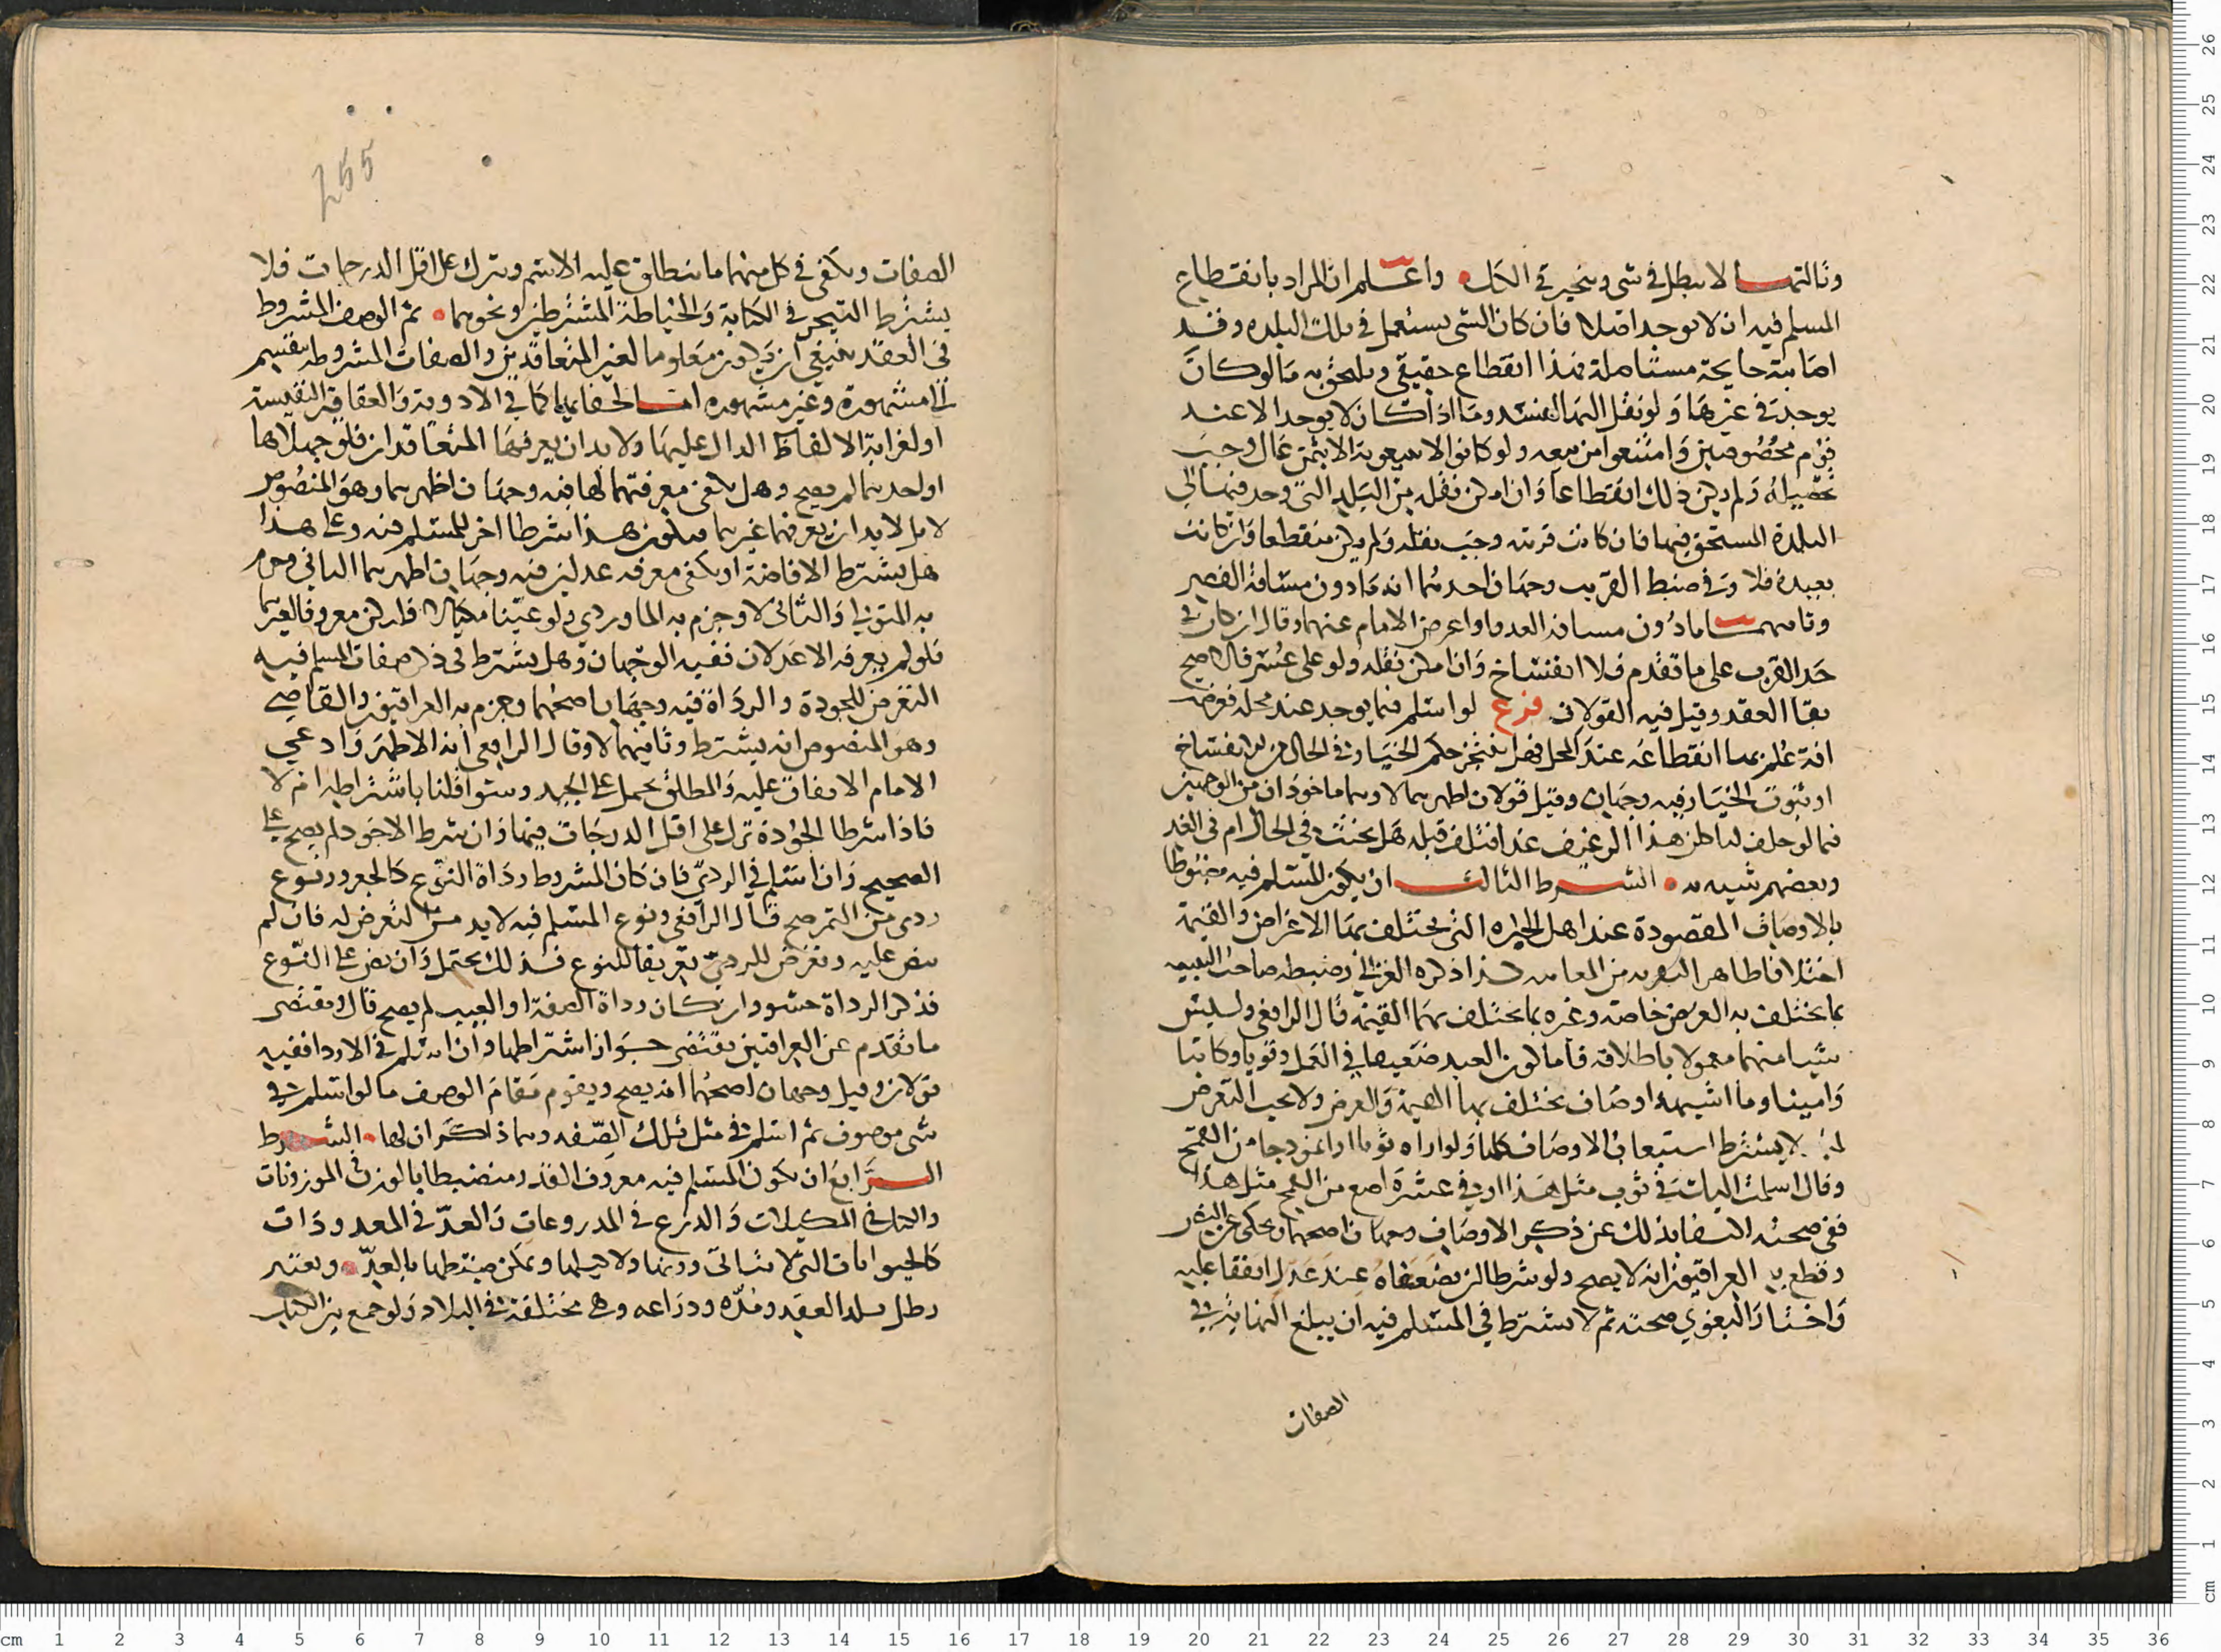 وثالثها لا يبطل في شي ويتخير في الكل واعلم ان المراد بانقطاع
المسلم فيه ان لا يوجد اصلا فان كان الشي يستعمل في تلك البلده وقد
اصابته جايحة مستاصلة فهذا انقطاع حقيقي ويلحق به ما لو كان
يوجد في غيرها ولو نقل اليها لفسد وما اذا كان لا يوجد الا عند
قوم مخصوصين وامتنعوا من بيعه ولو كانوا لا يبيعونه الا بثمن غال وجب
تحصيله ولم يكن ذلك انقطاعا وان امكن نقله من البلد التي وجد فيها الي
البلدة المستحق فيها فان كانت قريبه وجب نقله ولم يكن منقطعا وان كانت
بعيدة فلا وفي ضبط القريب وجهان احدهما انه مادون مسافة القصر
وثانيهما مادون مسافة العدوا واعرض الامام عنهما وقال ان كان في
حد القرب على ما تقدم فلا انفساخ وان امكن نقله ولو على عسر فالاصح
بقا العقد وقيل فيه القولان فرع لو اسلم فيما يوجد عند محله فعرضت
افة علم بها انقطاعه عند المحل فهل يتنجز حكم الخيار في الحال من الانفساخ
او ثبوت الخيار فيه وجهان وقيل قولان اظهرهما لا وهما ماخوذان من الوجهين
فيما لو حلف لياكلن هذا الرغيف غدا فتلف قبله هل يحنث في الحال ام في الغد
وبعضهم شبهه به الشرط الثالث ان يكون المسلم فيه مضبوطا
بالاوصاف المقصودة عند اهل الخبره التي يختلف بها الاغراض والقيمة
اختلافا ظاهرا كذا ذكره الغزالي وضبطه صاحب التنبيه
بما يختلف به الغرض خاصة وغيره بما يختلف بهما القيمة قال الرافعي وليس
شيا منهما معمولا باطلاقه فاما كون العبد ضعيفا في العمل وقويا وكاتبا
وامينا وما اشبهه اوصاف يختلف بها القيمة والغرض ولا يجب التعرض
لها لا يشترط استيعاب الاوصاف كلها ولو اراه ثوبا او انموذجا من القمح
وقال اسلمت اليك في ثوب مثل هذا او في عشرة اصع من القمح مثل هذا
ففي صحته اكتفا بذلك عن ذكر الاوصاف وجهان اصحهما ويحكى عن النص
وقطع به العراقيون انه لا يصح ولو شرطا ان يضعفاه عند عدل اتفقا عليه
واختار البغوي صحته ثم لا يشترط في المسلم فيه ان يبلغ النهاية في
الصفات
255
الصفات ويكفي في كل منهما ما ينطلق عليه الاسم وينزل على اقل الدرجات فلا
يشترط التبحر في الكتابة والخياطة المشترطين ونحوهما ثم الوصف المشروط
في العقد ينبغي ان يكون معلوما لغير المتعاقدين والصفات المشروط ينقسم
الي مشهورة وغير مشهوره اما لخفايها كما في الادوية والعقاقير النفيسة
او لغرابة الالفاظ الدال عليها ولا بد ان يعرفها المتعاقدان فلو جهلاها
او احدهما لم يصح وهل يكفي معرفتهما لها فيه وجهان اظهرهما وهو المنصوص
لا بل لا بد ان يعرفها غيرهما فيكون هذا شرطا اخر للمسلم فيه وعلى هذا
هل يشترط الافاضة او يكفي معرفه عدلين فيه وجهان اظهرهما الثاني وجزم
به المتولي والثاني لا وجزم به الماوردي ولو عينا مكيالا فليكن معروفا لغيرهما
فلو لم يعرفه الا عدلان ففيه الوجهان وهل يشترط في ذكر صفات المسلم فيه
التعرض للجودة والرداة فيه وجهان اصحهما وجزم به العراقيون والقاضي
وهو المنصوص انه يشترط وثانيهما لا وقال الرافعي انه الاظهر وادعي
الامام الاتفاق عليه والمطلق يحمل على الجيد وسوا قلنا باشتراطه ام لا
فاذا شرطا الجودة نزل على اقل الدرجات فيها وان شرط الاجود لم يصح على
الصحيح وان اسلم في الردي فان كان المشروط رداة النوع كالجعرور نوع
ردي من التمر صح قال الرافعي ونوع المسلم فيه لا بد من التعرض له فان لم
ينص عليه وتعرض للردي تعريفا للنوع فذلك يحتمل وان نص على النوع
فذكر الرداة حشو وان كان رداة الصفة او العيب لم يصح قال ومقتضى
ما تقدم عن العراقيين يقتضي جواز اشتراطها وان اسلم في الاردا ففيه
قولان وقيل وجهان اصحهما انه يصح ويقوم مقام الوصف ما لو اسلم في
شي موصوف ثم اسلم في مثل تلك الصفه وهما ذاكران لها الشرط
الرابع ان يكون المسلم فيه معروف القدر منضبطا بالوزن في الموزونات
والكيل في المكيلات والذرع في المدروعات والعد في المعدودات
كالحيوانات التي لا يتاتى وزنها ولا كيلها ويمكن ضبطها بالعد ويعتبر
رطل بلد العقد ومده وذراعه وهي مختلفة في البلاد ولو جمع بين الكيل